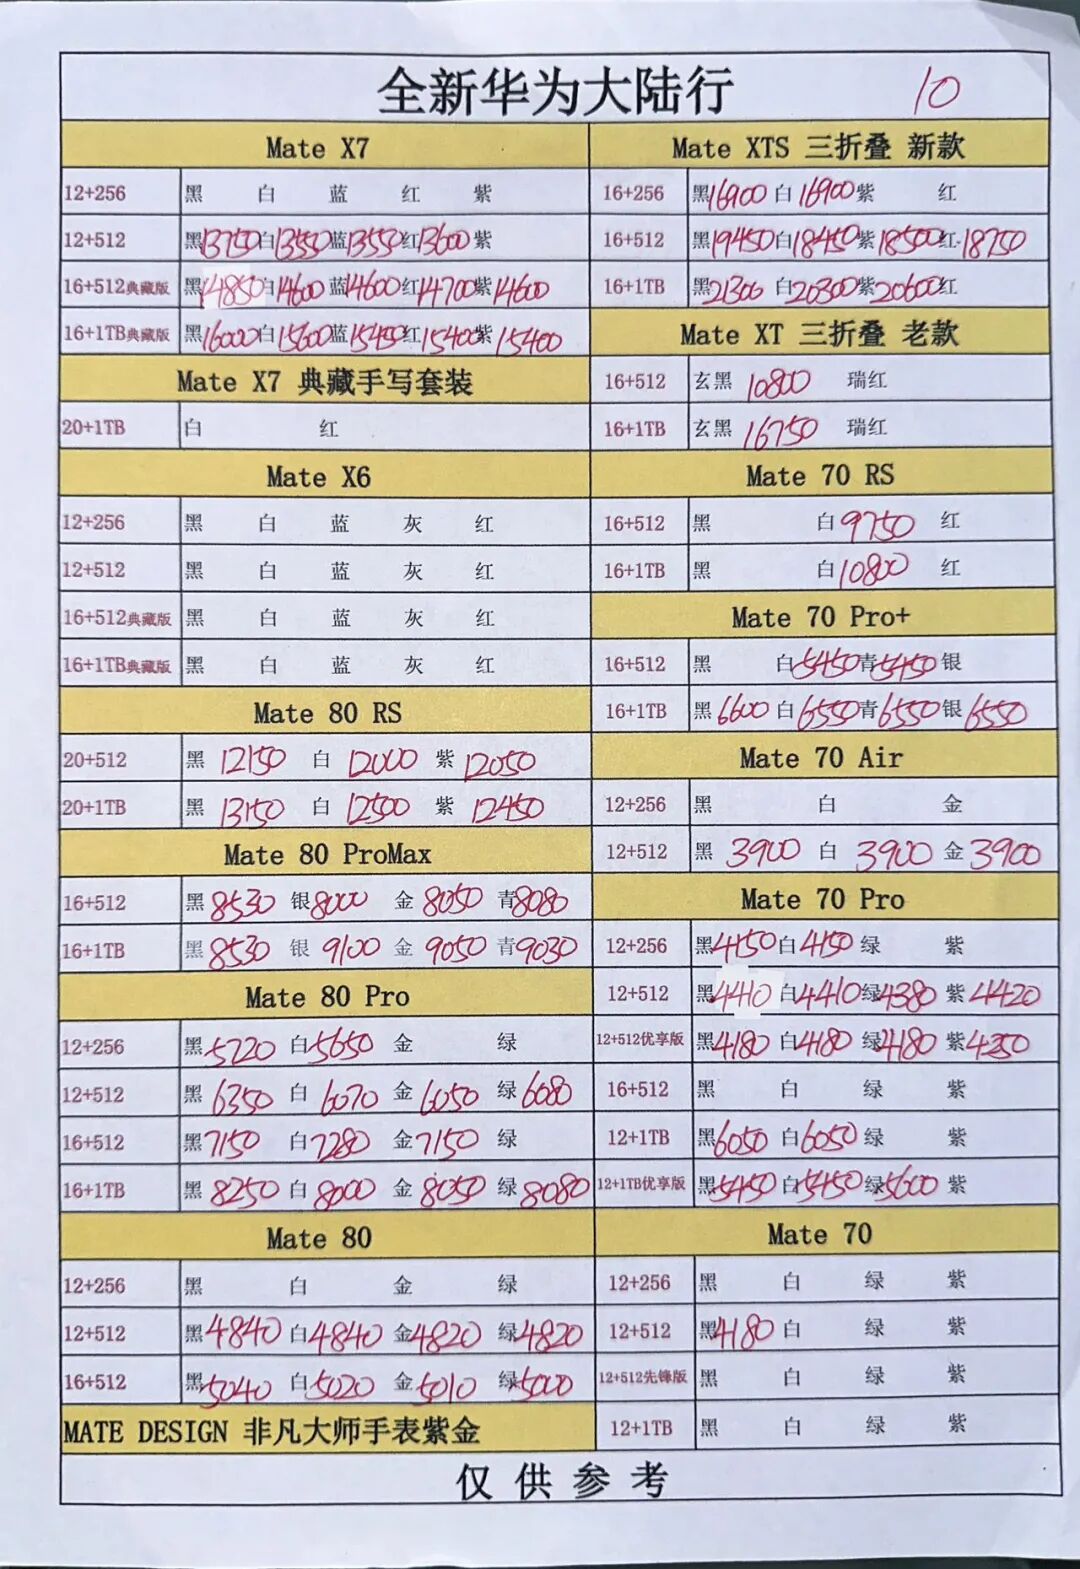 全新华为大陆行 10
Mate X7
12+256 黑 白 蓝 红 紫
12+512 黑13750白13550蓝13550红13600紫
16+512典藏版 黑14850白14600蓝14600红14700紫14600
16+1TB典藏版 黑16000白15600蓝15450红15400紫15400
Mate X7 典藏手写套装
20+1TB 白 红
Mate X6
12+256 黑 白 蓝 灰 红
12+512 黑 白 蓝 灰 红
16+512典藏版 黑 白 蓝 灰 红
16+1TB典藏版 黑 白 蓝 灰 红
Mate 80 RS
20+512 黑 12150 白 12000 紫 12050
20+1TB 黑 13150 白 12500 紫 12450
Mate 80 ProMax
16+512 黑 8530 银8000 金 8050 青8080
16+1TB 黑 8530 银 9100 金 9050 青9030
Mate 80 Pro
12+256 黑5720 白5650 金 绿
12+512 黑 6350 白 6070 金 6050 绿6080
16+512 黑7150 白7280 金7150 绿
16+1TB 黑 8250 白 8000 金 8050 绿 8080
Mate 80
12+256 黑 白 金 绿
12+512 黑4840 白4840 金4820 绿4820
16+512 黑5040 白5020 金5010 绿5000
MATE DESIGN 非凡大师手表紫金
Mate XTS 三折叠 新款
16+256 黑16900 白16900紫 红
16+512 黑19450白18450紫18500红18750
16+1TB 黑21300 白20300紫20600红
Mate XT 三折叠 老款
16+512 玄黑 10800 瑞红
16+1TB 玄黑 16750 瑞红
Mate 70 RS
16+512 黑 白9750 红
16+1TB 黑 白10800 红
Mate 70 Pro+
16+512 黑 白5450青5450银
16+1TB 黑6600白6550青6550银6550
Mate 70 Air
12+256 黑 白 金
12+512 黑 3900 白 3900 金3900
Mate 70 Pro
12+256 黑4150白4150 绿 紫
12+512 黑4410 白4410绿4380 紫4420
12+512优享版 黑4180 白4180 绿4180 紫4250
16+512 黑 白 绿 紫
12+1TB 黑6050 白6050绿 紫
12+1TB优享版 黑5450白5450绿5600 紫
Mate 70
12+256 黑 白 绿 紫
12+512 黑4180 白 绿 紫
12+512先锋版 黑 白 绿 紫
12+1TB 黑 白 绿 紫
仅供参考